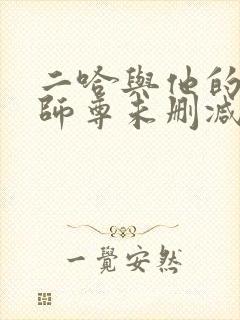 二哈與他的
師尊未刪減
一覺安然